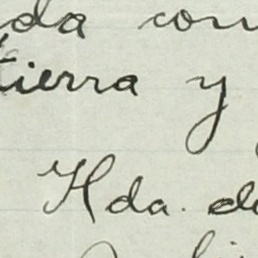 da con
tierra y
Hda. de